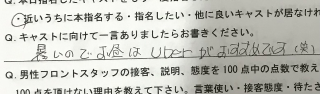 Q. 本日指名したキャストを
○近いうちに本指名する・指名したい・他に良いキャストが居なけれ
Q. キャストに向けて一言ありましたらお書きください。
暑いのでお昼は Uber がおすすめです(笑)
Q. 男性フロントスタッフの接客、説明、態度を 100 点中の点数で教え
100 点を頂けない理由を教えて下さい。言葉使い・接客態度・待たさ